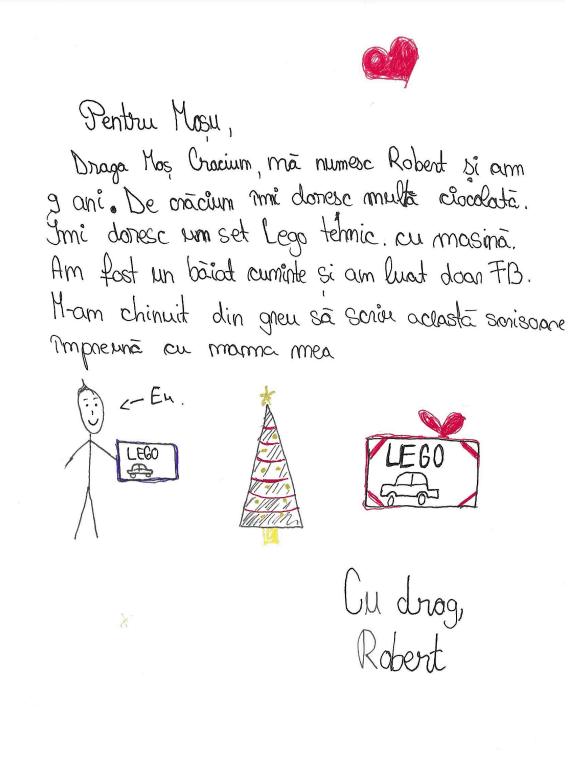 Pentru Moșu,
Draga Moș Craciun, mă numesc Robert și am
9 ani. De crăciun îmi doresc multă ciocolată.
Îmi doresc un set Lego tehnic. cu masină.
Am fost un băiat cuminte și am luat doar FB.
M-am chinuit din greu să scriu această scrisoare
împreună cu mama mea
← Eu.
LEGO
LEGO
Cu drag,
Robert